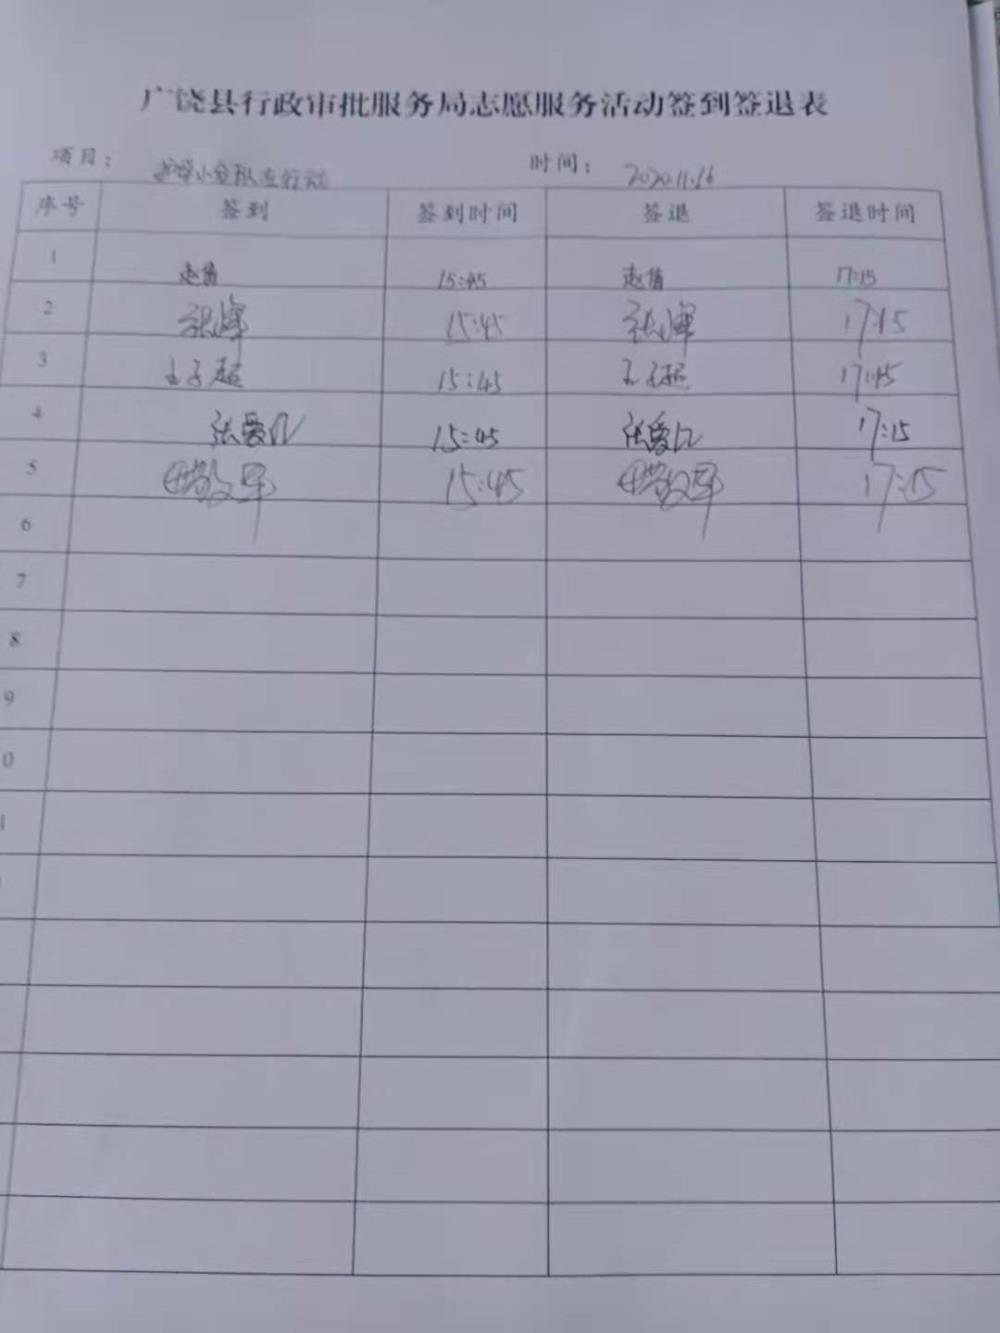 广饶县行政审批服务局志愿服务活动签到签退表
项目： 小分队在行动 时间： 2020.11.16
序号 签到 签到时间 签退 签退时间
1 赵苗 15:45 赵苗 17:15
2 张辉 15:45 张辉 17:15
3 王子超 15:45 王子超 17:15
4 张爱 15:45 张爱 17:15
5 15:45 17:15
6
7
8
9
0